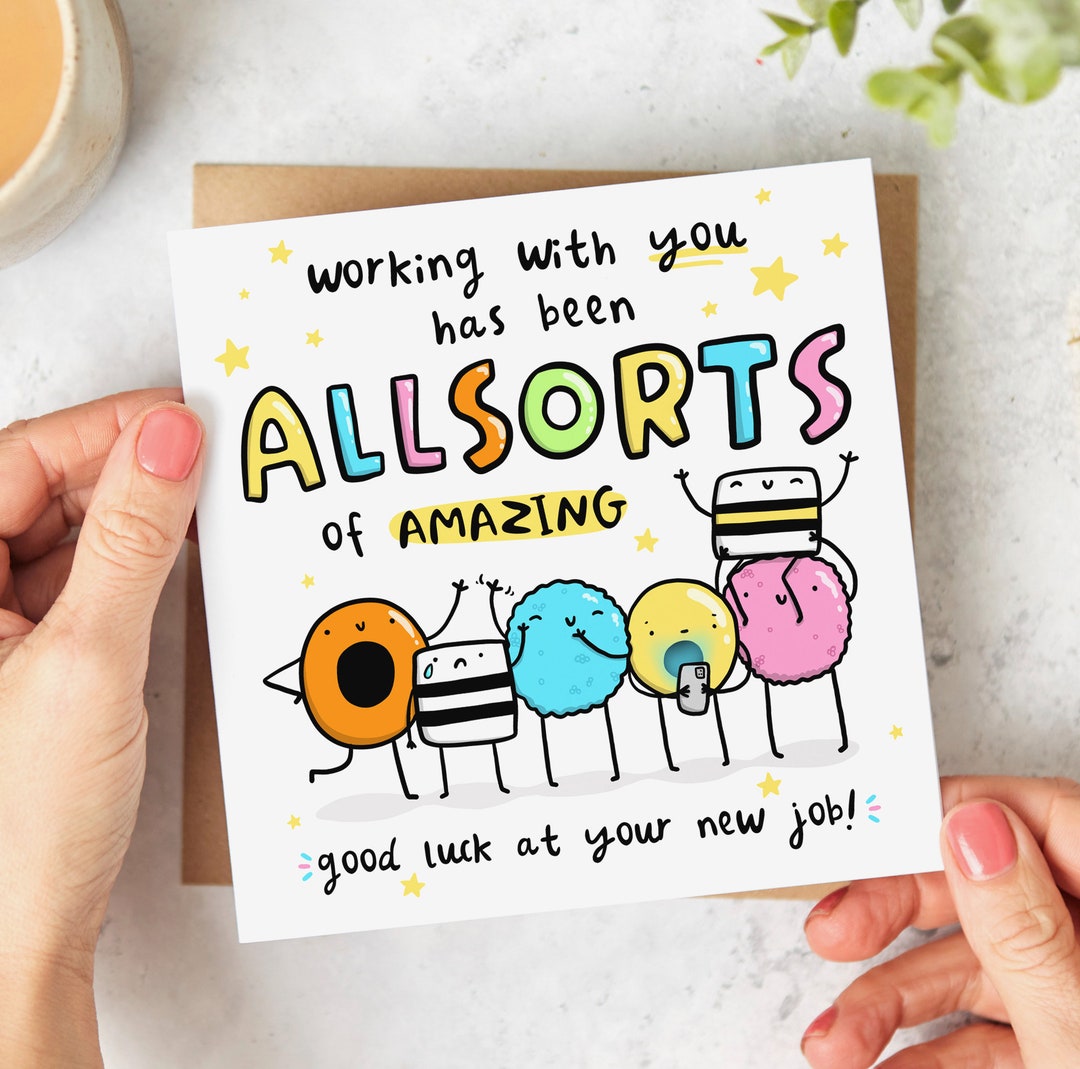 working with you
has been
ALLSORTS
of AMAZING
good luck at your new job!